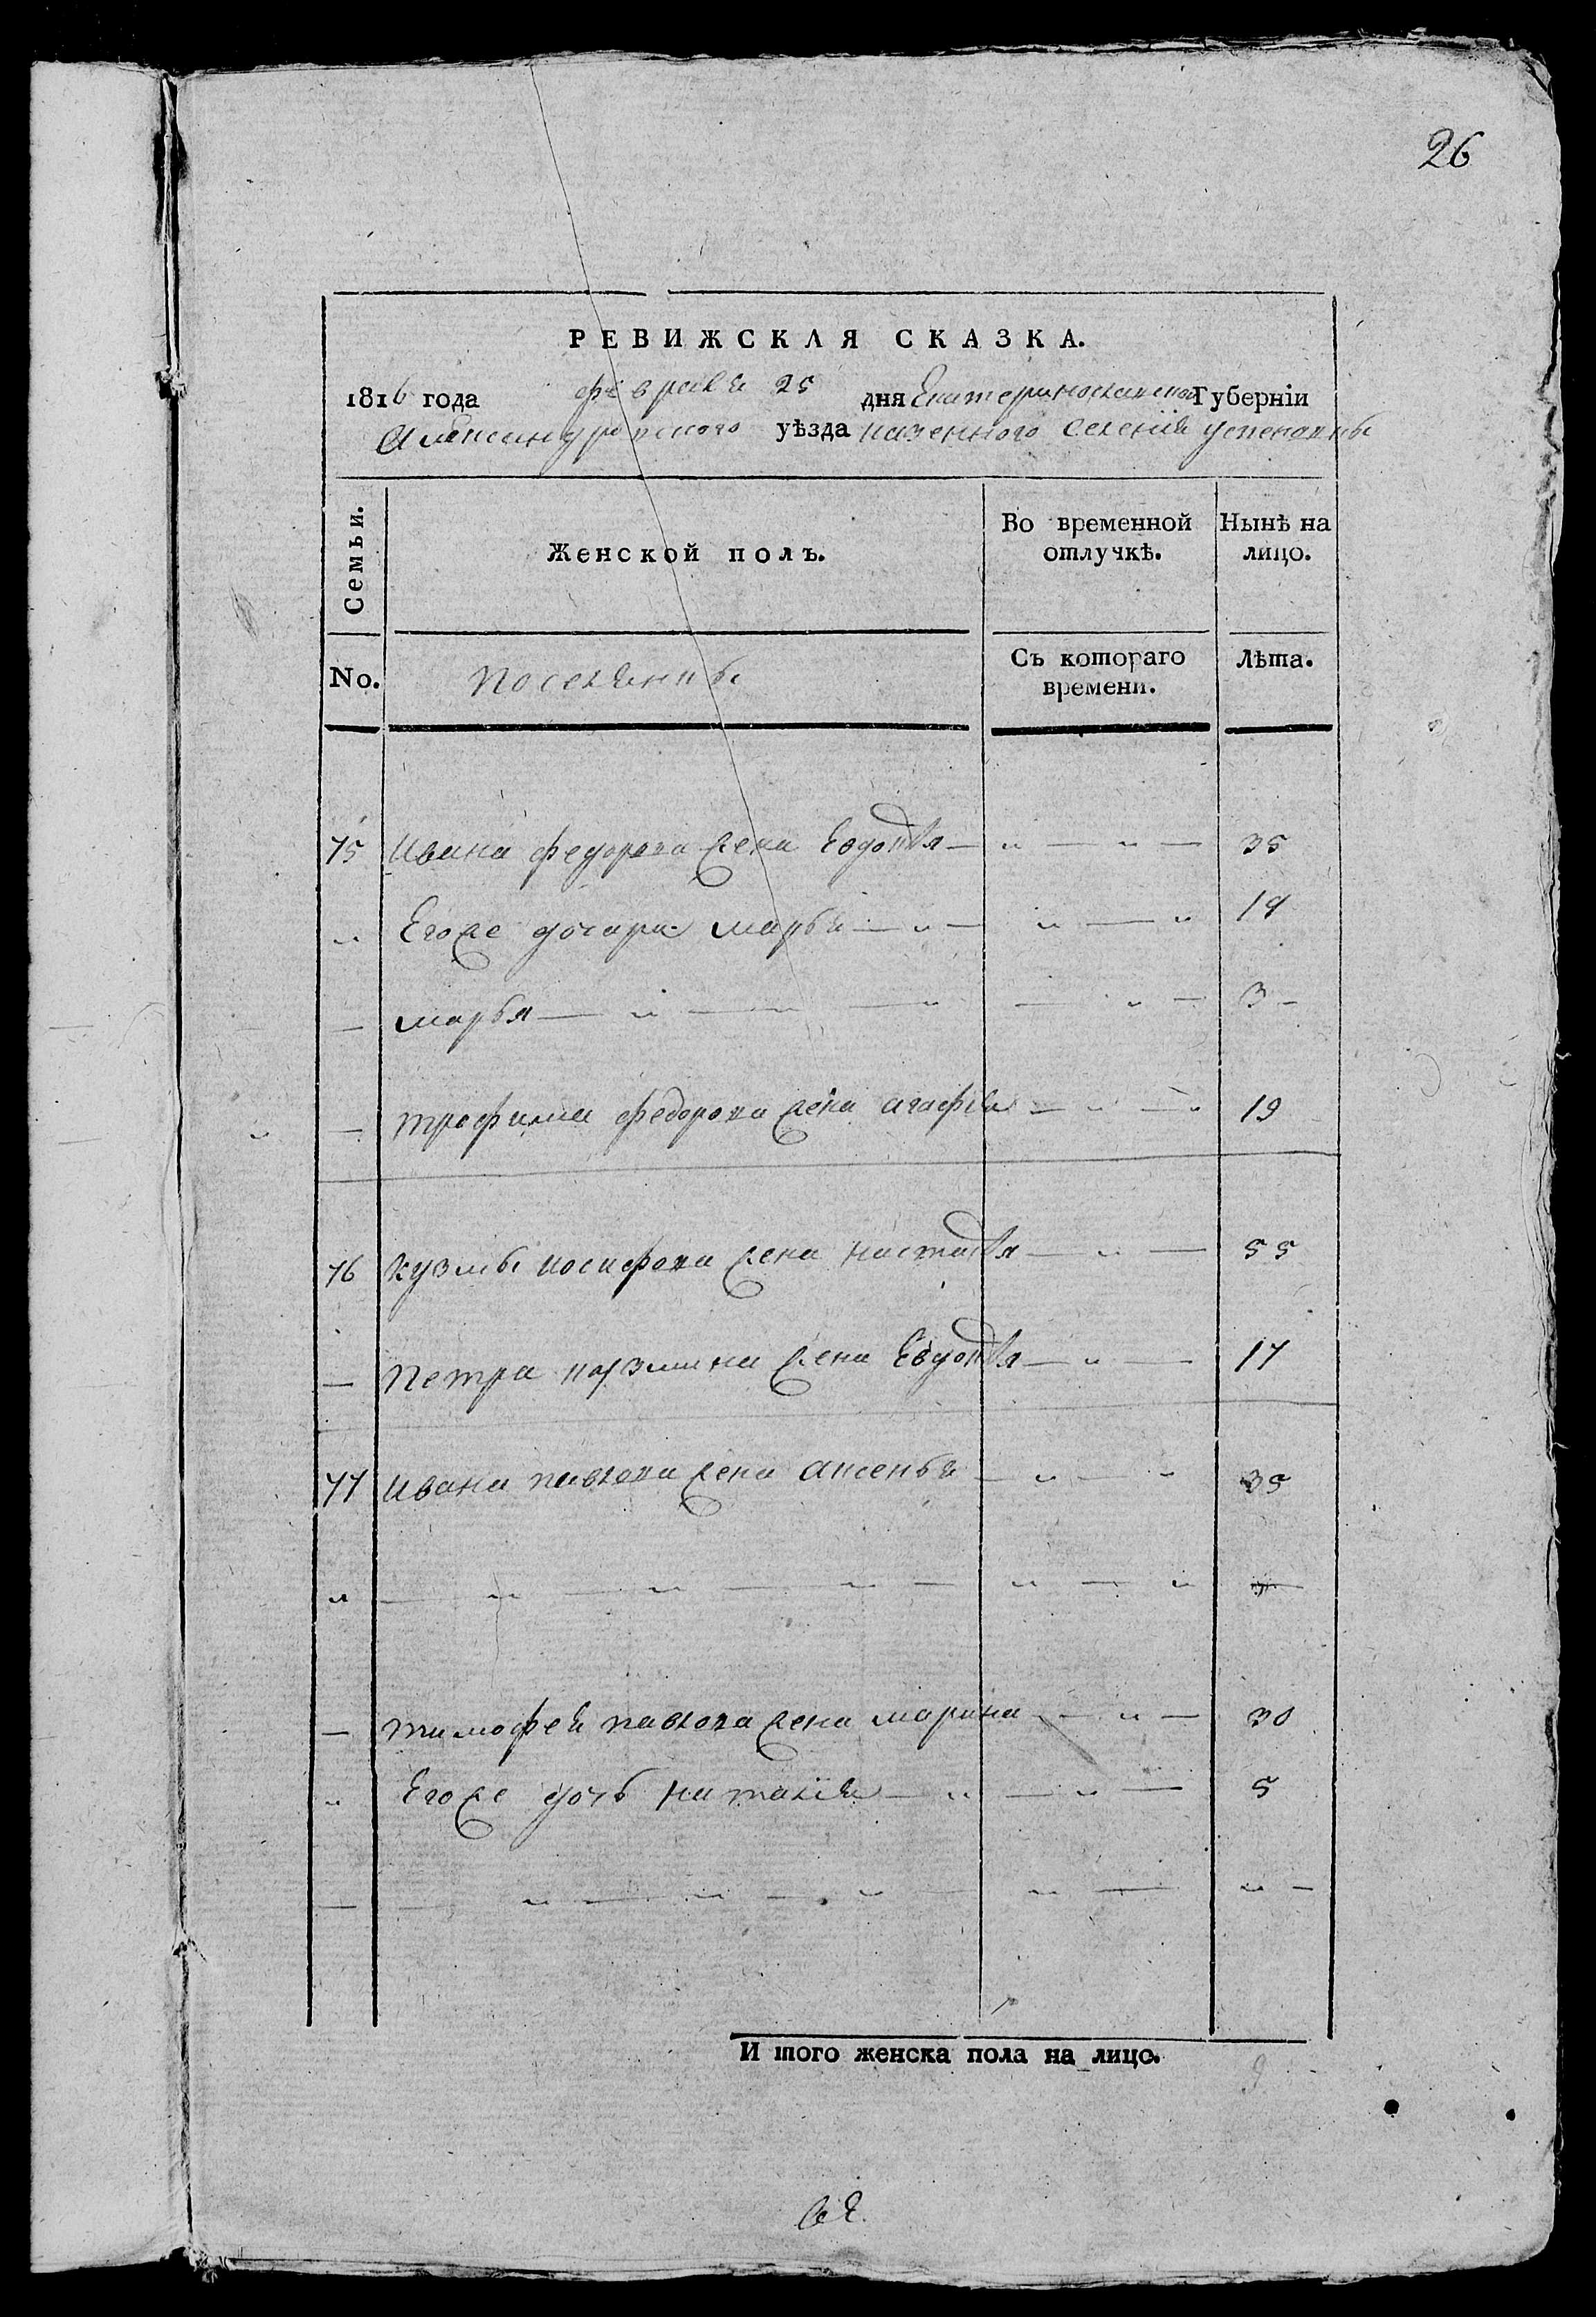 26
РЕВИЖСКАЯ СКАЗКА.
1816 года февраля 25 дня Екатеринославской Губерніи
Александровского уѣзда казенного селенія успеновкы
Семьи.
Женской полъ.
Во временной отлучкѣ.
Нынѣ на лицо.
No.
поселянкы
Съ котораго времени.
Лѣта.
75 Ивана федорова жена Евдокия — " — " — 35
" Егоже дочери марья — " — " — "
— марья — " — — " — " — 3 —
— трофима федорова жена агафия — " — " 19
76 кузмы иосифова жена настасия — " — 55
— петра кузмина жена Евдокия — " — 17
77 Ивана павлова жена аксенья — " — " 35
" — " — " — " — " — "
— тимофея павлова жена марина — " — 30
" Егоже дочь наталія — " — " — 5
— — " — " — " — " — " —
И того женска пола на лицо. 9